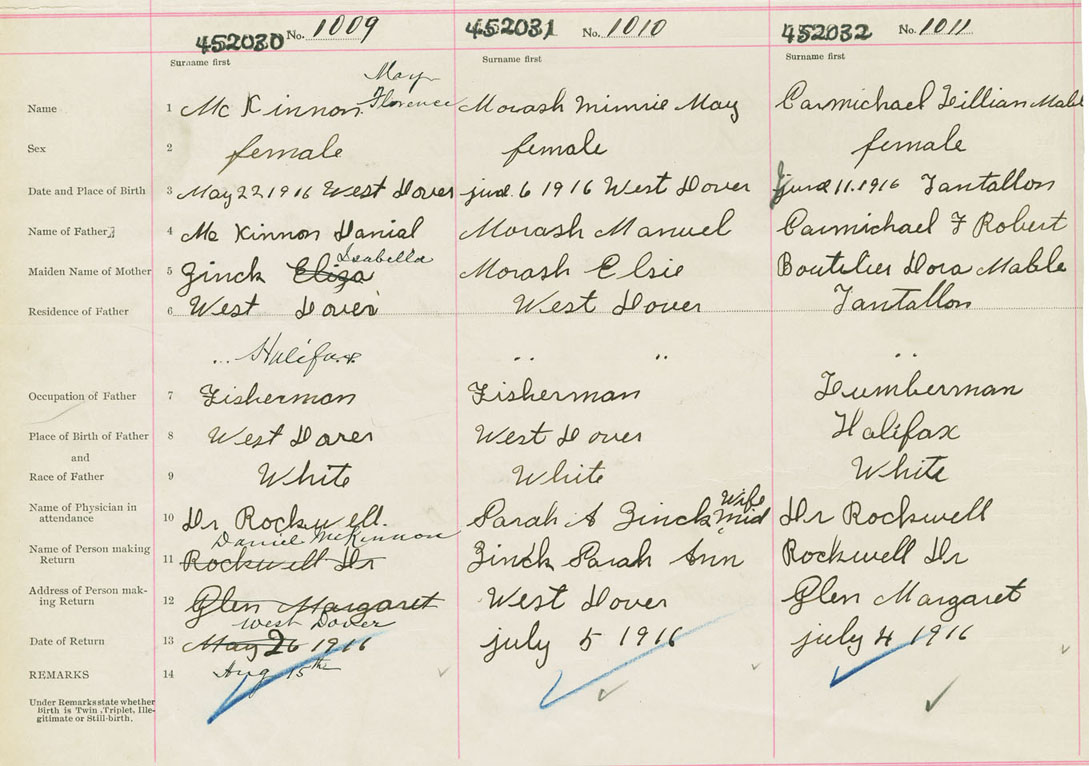 452030 No. 1009 452031 No. 1010 452032 No. 1011
Surname first Surname first Surname first
May
Name 1 Mc Kinnon Florence Morash Minnie May Carmichael Lillian Mable
Sex 2 female female female
Date and Place of Birth 3 May 22 1916 West Dover june 6 1916 West Dover june 11. 1916 Tantallon
Name of Father 4 Mc Kinnon Danial Morash Manuel Carmichael F Robert
Isabella
Maiden Name of Mother 5 Zinck Eliza Morash Elsie Boutelier Dora Mable
Residence of Father 6 West Dover West Dover Tantallon
... Halifax .. .. ..
Occupation of Father 7 Fisherman Fisherman Lumberman
Place of Birth of Father 8 West Dover West Dover Halifax
and
Race of Father 9 White White White
Name of Physician in Wife
attendance 10 Dr Rockwell. Sarah A Zinck Mid Dr Rockwell
Daniel McKinnon
Name of Person making
Return 11 Rockwell Dr Zinck Sarah Ann Rockwell Dr
Address of Person mak-
ing Return 12 Glen Margaret West Dover Glen Margaret
West Dover
Date of Return 13 May 26 1916 july 5 1916 july 4 1916
REMARKS 14 Aug 15th
Under Remarks state whether
Birth is Twin, Triplet, Ille-
gitimate or Still-birth.